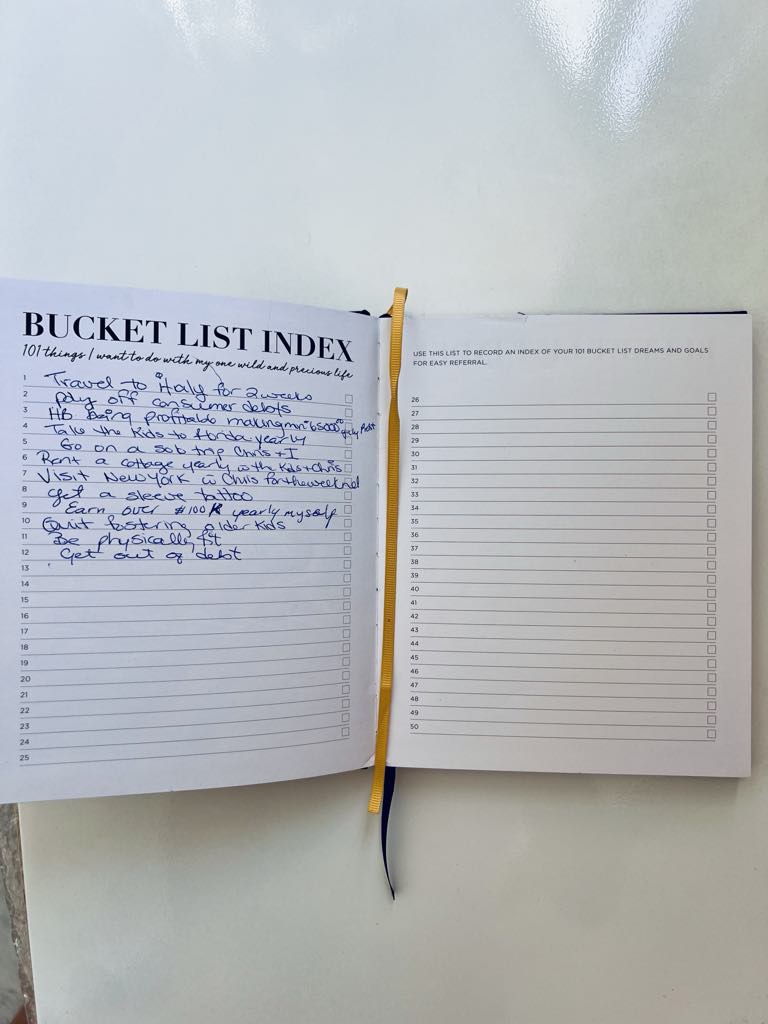 BUCKET LIST INDEX
101 things I want to do with my one wild and precious life
1 Travel to Italy for 2 weeks
2 pay off consumer debts
3 HB Being profitable making min
4 Take the Kids to florida yearly
5 Go on a sob trip Chris + I
6 Rent a cottage yearly with the Kids + Chris
7 Visit New York w Chris for the weekend
8 get a sleeve tattoo
9 Earn over $100K yearly myself
10 Quit fostering older kids
11 Be physically fit
12 Get out of debt
13
14
15
16
17
18
19
20
21
22
23
24
25
USE THIS LIST TO RECORD AN INDEX OF YOUR 101 BUCKET LIST DREAMS AND GOALS
FOR EASY REFERRAL.
26
27
28
29
30
31
32
33
34
35
36
37
38
39
40
41
42
43
44
45
46
47
48
49
50